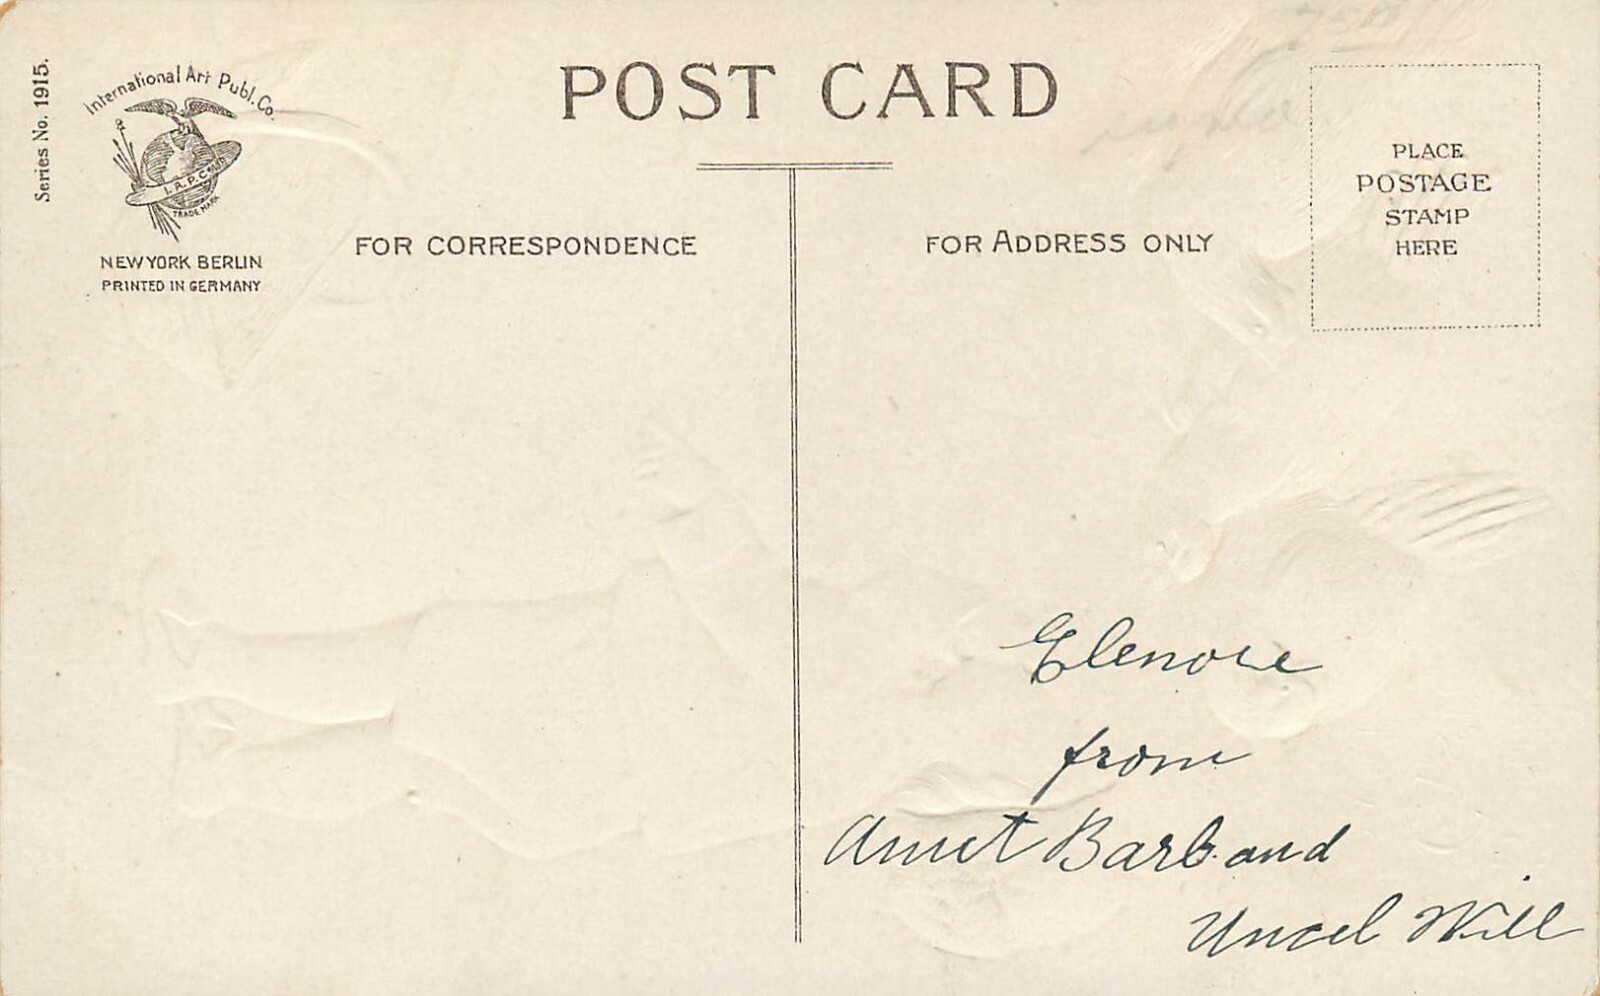 Series No. 1915.
International Art Publ. Co.
I. A. P. Co.
TRADE MARK
NEW YORK BERLIN
PRINTED IN GERMANY
POST CARD
FOR CORRESPONDENCE
FOR ADDRESS ONLY
PLACE
POSTAGE
STAMP
HERE
Elenore
from
Aunt Barb. and
Uncel Will